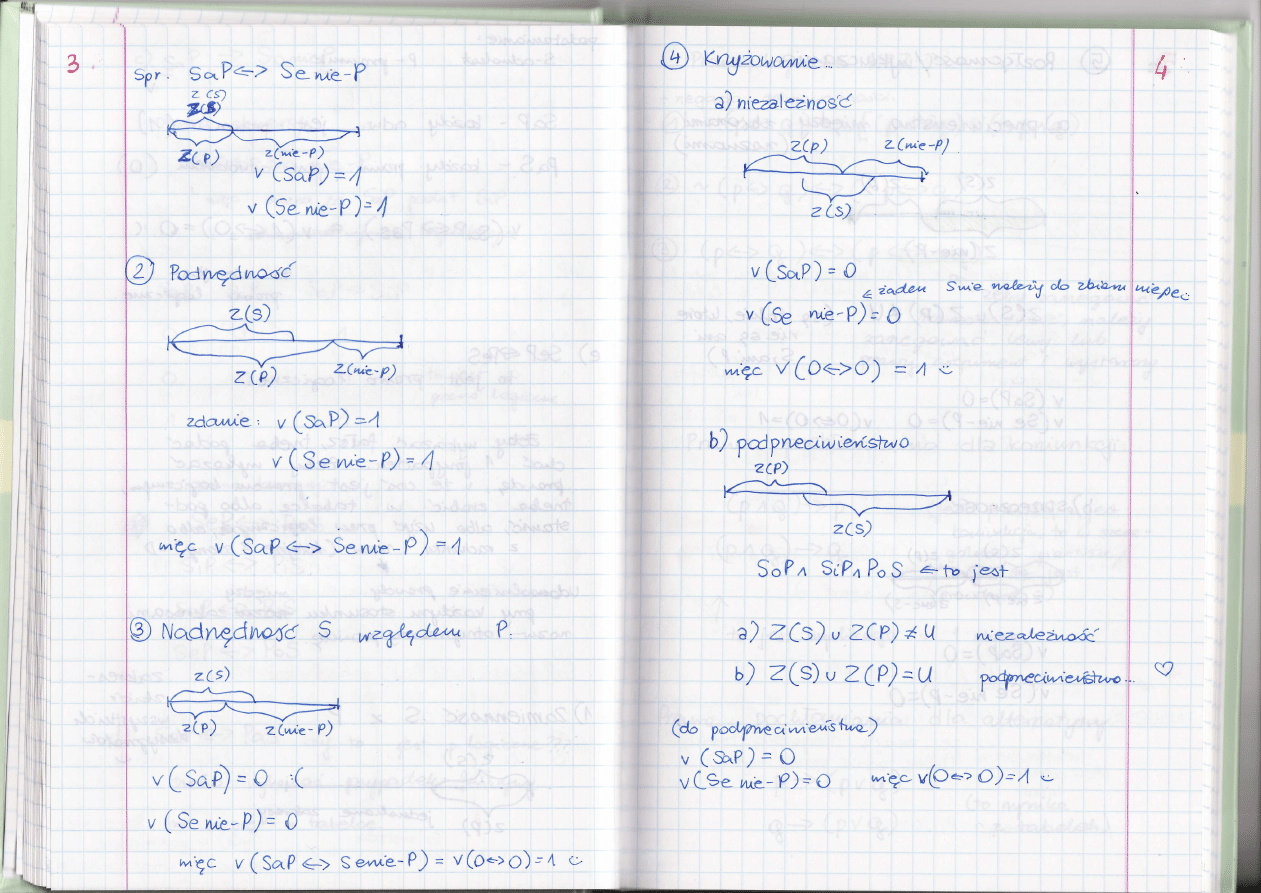 3.
Spr. SaP <=> Se nie-P
Z(S)
Z(S)
Z(P) Z(nie-P)
v (SaP) = 1
v (Se nie-P) = 1
② Podrzędność
Z(S)
Z(P) Z(nie-P)
zdanie: v (SaP) = 1
v (Se nie-P) = 1
więc v (SaP <=> Se nie-P) = 1
③ Nadrzędność S względem P.
Z(S)
Z(P) Z(nie-P)
v (SaP) = 0 :(
v (Se nie-P) = 0
więc v (SaP <=> Se nie-P) = v(0<=>0) = 1 :)
4
④ Krzyżowanie...
a) niezależność
Z(P) Z(nie-P)
Z(S)
v (SaP) = 0
← żaden S nie należy do zbioru niepe :)
v (Se nie-P) = 0
więc v (0<=>0) = 1 :)
b) podprzeciwieństwo
Z(P)
Z(S)
SoP ∧ SiP ∧ PoS ← to jest
a) Z(S) ∪ Z(P) ≠ U niezależność
b) Z(S) ∪ Z(P) = U podprzeciwieństwo... ♡
(do podprzeciwieństwa)
v (SaP) = 0
v (Se nie-P) = 0 więc v(0<=>0) = 1 :)